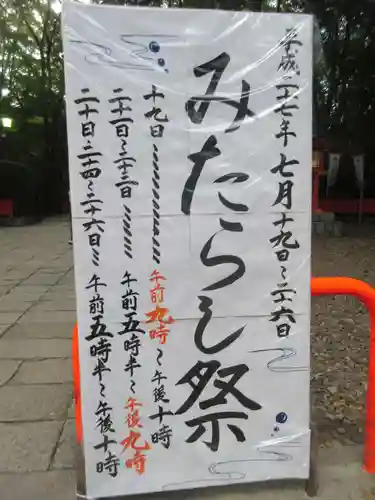 平成二十七年七月十九日～二十六日
みたらし祭
十九日〃〃〃〃〃午前九時～午後十時
二十一日～二十三日〃〃〃午前五時半～午後九時
二十日・二十四～二十六日 午前五時半～午後十時